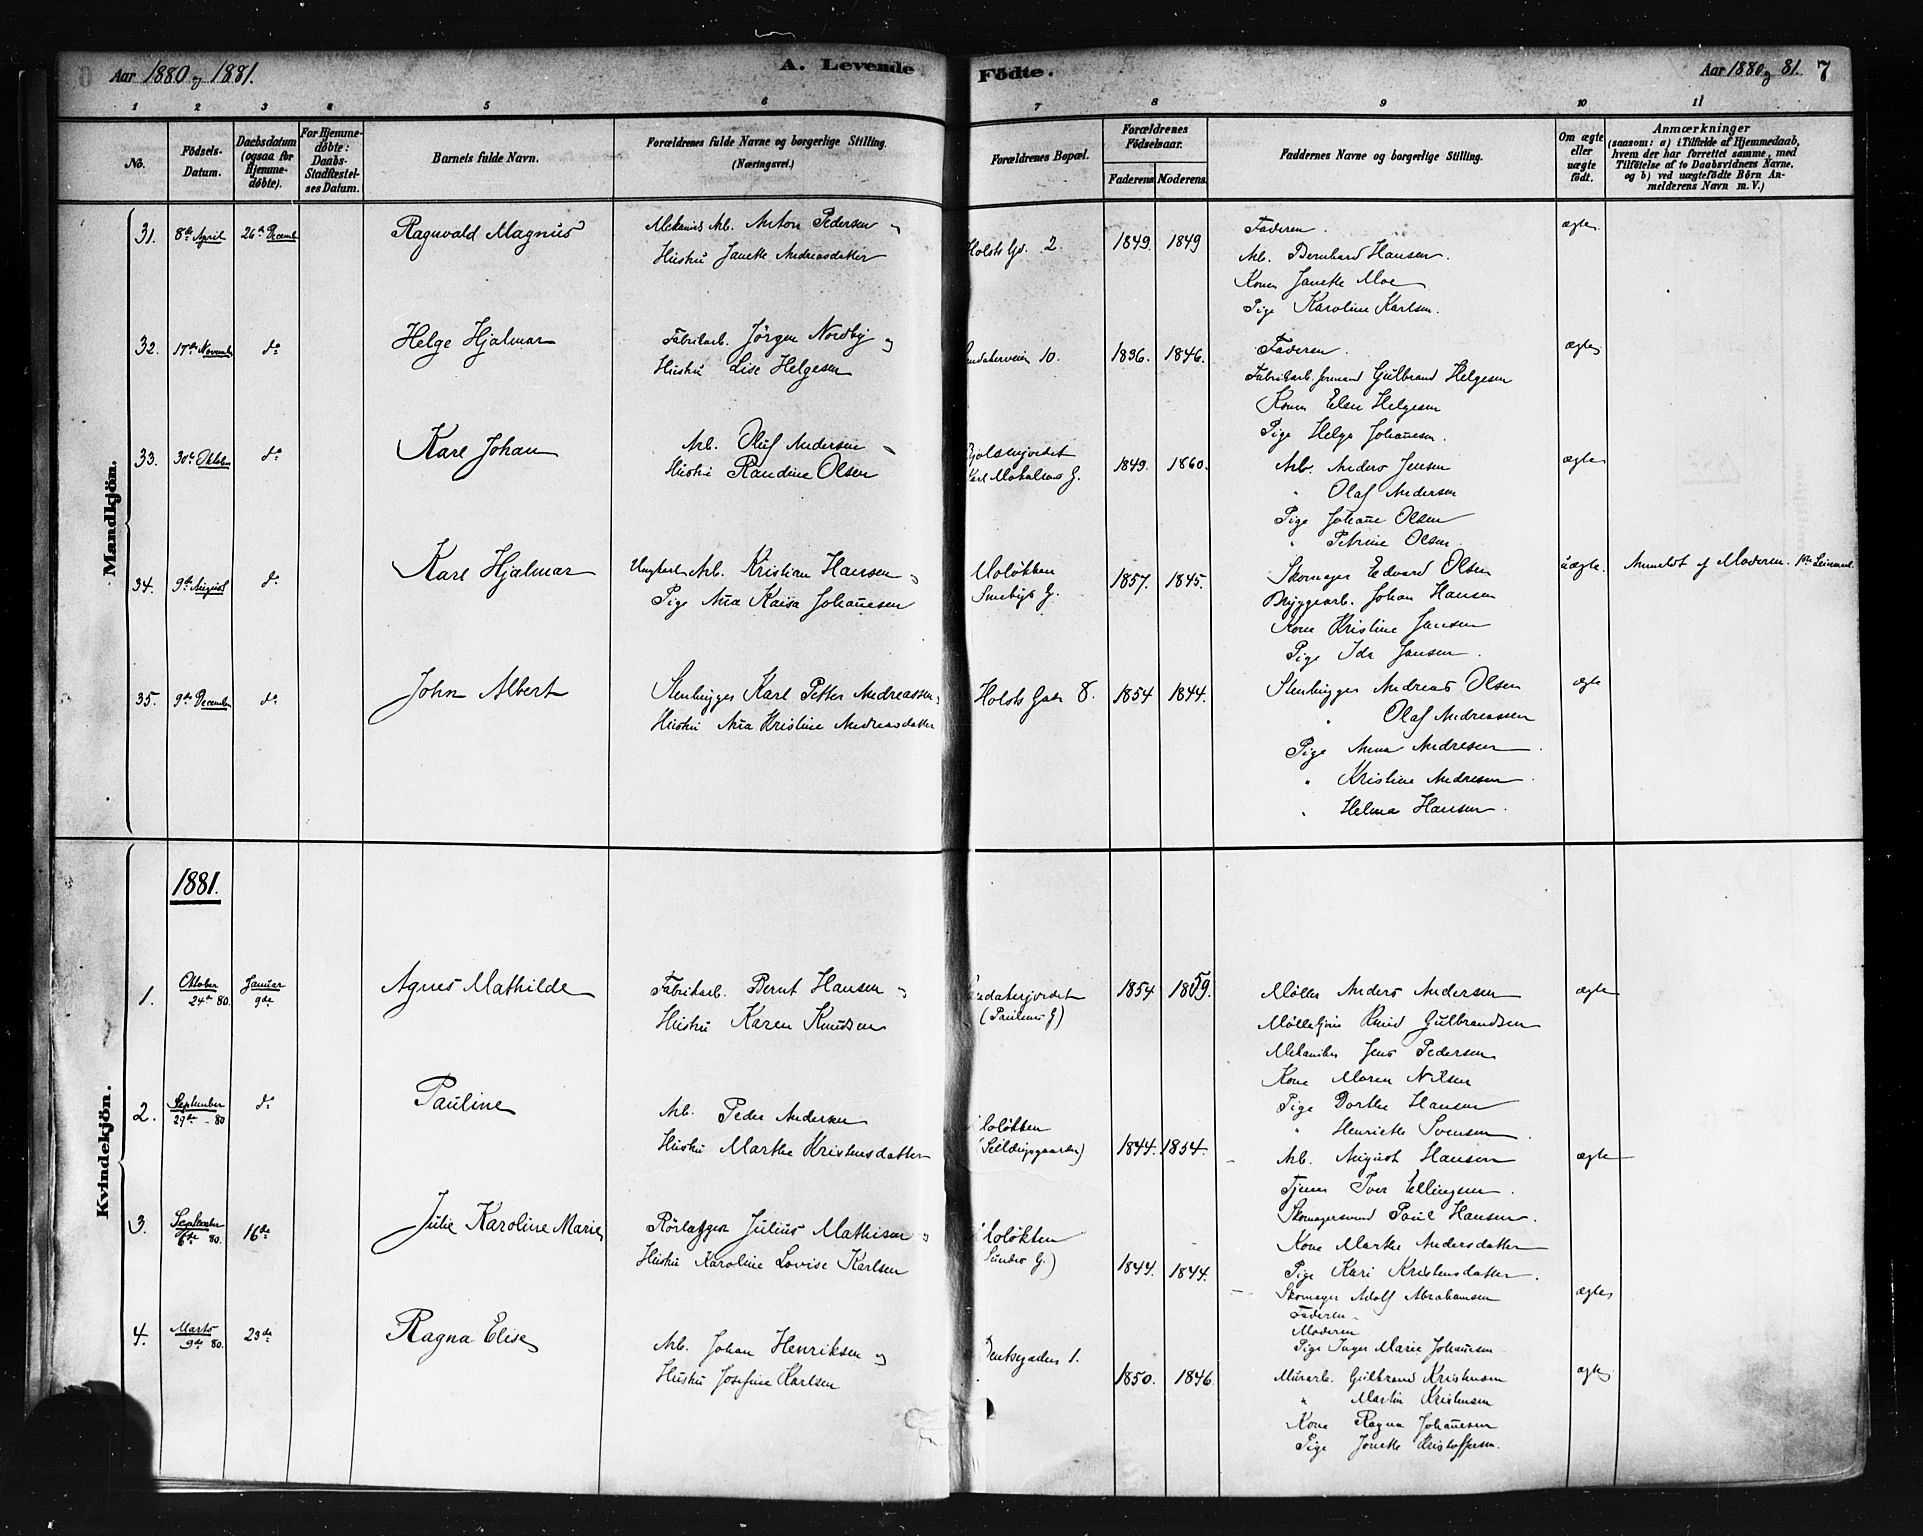 Aar 1880 og 1881.
A. Levende Födte.
Aar 1880 og 81. 7
1 2 3 4 5 6 7 8 9 10 11
No.
Födsels-Datum.
Daabsdatum (ogsaa for Hjemme-døbte).
For Hjemme-døbte: Daabs-Stadfæstel-ses Datum.
Barnets fulde Navn.
Forældrenes fulde Navne og borgerlige Stilling.
(Næringsvei.)
Forældrenes Bopæl.
Forældrenes Födselsaar.
Faderens Moderens
Faddernes Navne og borgerlige Stilling.
Om ægte eller uægte födt.
Anmærkninger
(saasom: a) i Tilfælde af Hjemmedaab,
hvem der har forrettet samme, med
Tilföielse af to Daabsvidners Navne,
og b) ved uægtefödte Börn An-
melderens Navn m. V.)
Mandkjön.
31. 8de April 26de Decemb Ragnvald Magnus
Mekanisk Arb. Anton Pedersen og
Hustru Janette Andreasdatter
Holsts Gd. 2. 1849. 1849
Faderen.
Arb. Bernhard Hansen.
Kone Janette Moe
Pige Karoline Karlsen.
ægte
32. 17de Novemb do Helge Hjalmar
Fabrikarb. Jörgen Nordby og
Hustru Lise Helgesen
10. 1836. 1846.
Faderen.
Fabrikarb. formand Gulbrand Helgesen
Konen Else Helgesen
Pige Helga Johannesen.
ægte
33. 30te Oktober do Karl Johan
Arb. Oluf Andersen
Hustru Randine Olsen
1849. 1860.
Arb. Anders Jensen
" Olaf Andersen
Pige Johanne Olsen
" Petrine Olsen.
ægte
34. 9de August do Karl Hjalmar
Ungkarl Arb. Kristian Hansen og
Pige Ana Kaisa Johannesen
Uoløkken
Smebys G.
1857. 1845.
Skomager Edvard Olsen
Byggearb. Johan Hansen
Kone Kristine Jansen
Pige Ida Jansen.
uægte. Anmeldt af Moderen.
35. 9de December do John Albert
Stenhugger Karl Petter Andreassen
Hustru Ana Kristine Andreasdatter
Holsts Gade 8. 1854 1844.
Stenhugger Andreas Olsen
" Olaf Andreassen
Pige Anna Andresen.
" Kristine Andresen.
" Helma Hansen.
ægte
Kvindekjön.
1881.
1. Oktober 24de 80. Januar 9de Agnes Mathilde
Fabrikarb. Bernt Hansen og
Hustru Karen Knudsen
(Paulens G)
1854 1859.
Møller Anders Andersen
Knud Gulbrandsen
Mekaniker Jens Pedersen
Kone Maren Nilsen
Pige Dorthe Hansen
" Henriette Svensen.
ægte
2. September 29de 80 do Pauline
Arb. Peder Andersen
Hustru Marthe Kristensdatter
Uoløkken
1844. 1854.
Arb. August Hansen
Tjener Iver Ellingsen.
Skomagersvend Paul Hansen.
Kone Marthe Andersdatter
Pige Kari Kristensdatter.
ægte
3. September 6te 80. 16de Julie Karoline Marie
Rörlægger Julius Mathisen og
Hustru Karoline Lovise Karlsen
Uoløkken
1844. 1844.
Skomager Adolf Abrahamsen
Faderen
Moderen
Pige Inger Marie Johannesen
ægte
4. Marts 9de 80. 23de Ragna Elise
Arb. Johan Henriksen og
Hustru Josefine Karlsen
1.
1850. 1846
Murarb. Gulbrand Kristensen
" Martin Kristensen
Kone Ragna Johannesen
Pige Janette Kristoffersen.
ægte